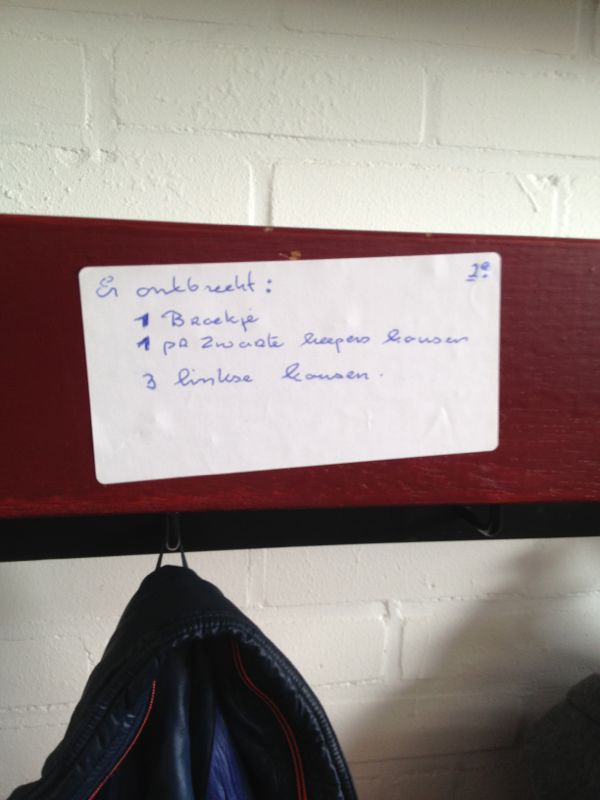 Er ontbreekt:
2e
1 Broekje
1 pr zwarte keepers kousen
3 linkse kousen.